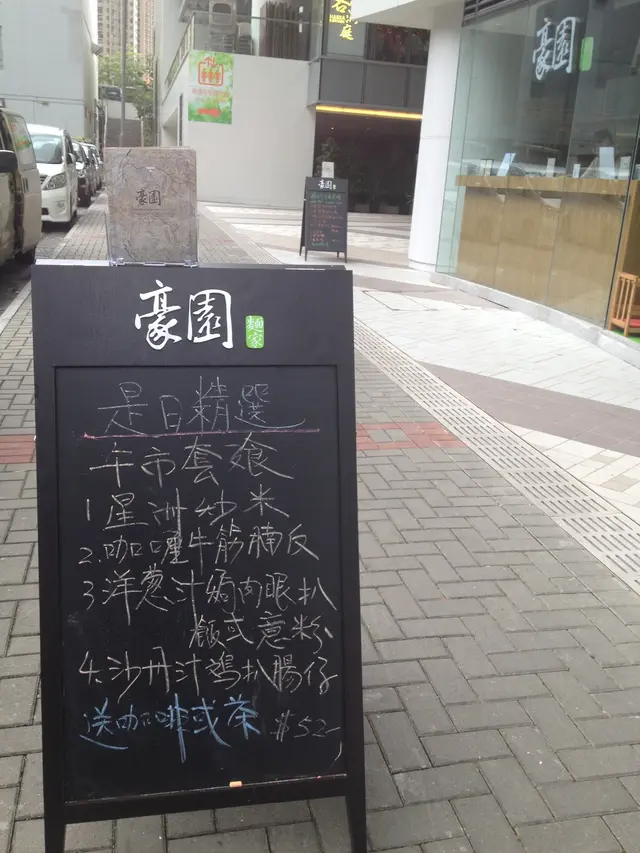 豪園
豪園
豪園 麵家
是日精選
午市套飡
1星洲炒米
2.咖喱牛筋腩反
3洋葱汁焗肉眼扒
飯或意粉
4.沙丹汁鷄扒腸仔
送咖啡或茶 $52-